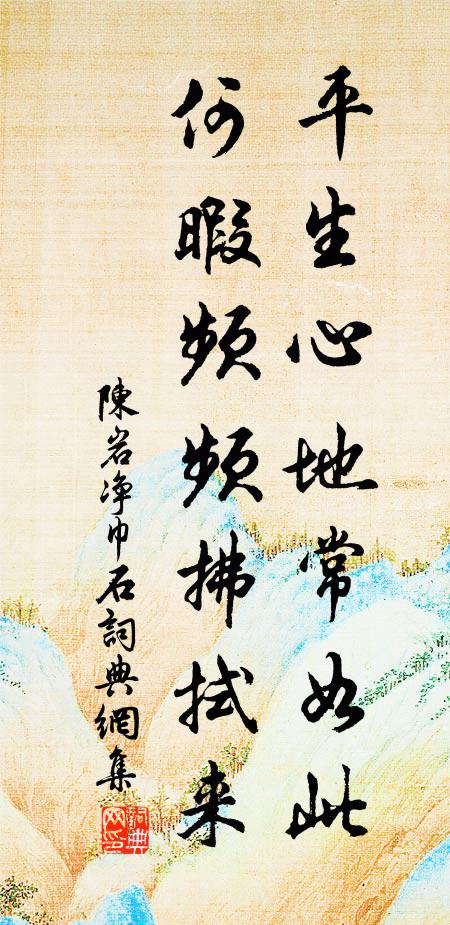 平生心地常如此
何暇頻頻拂拭来
陳岩淨巾石詞典網集
詞典
网印